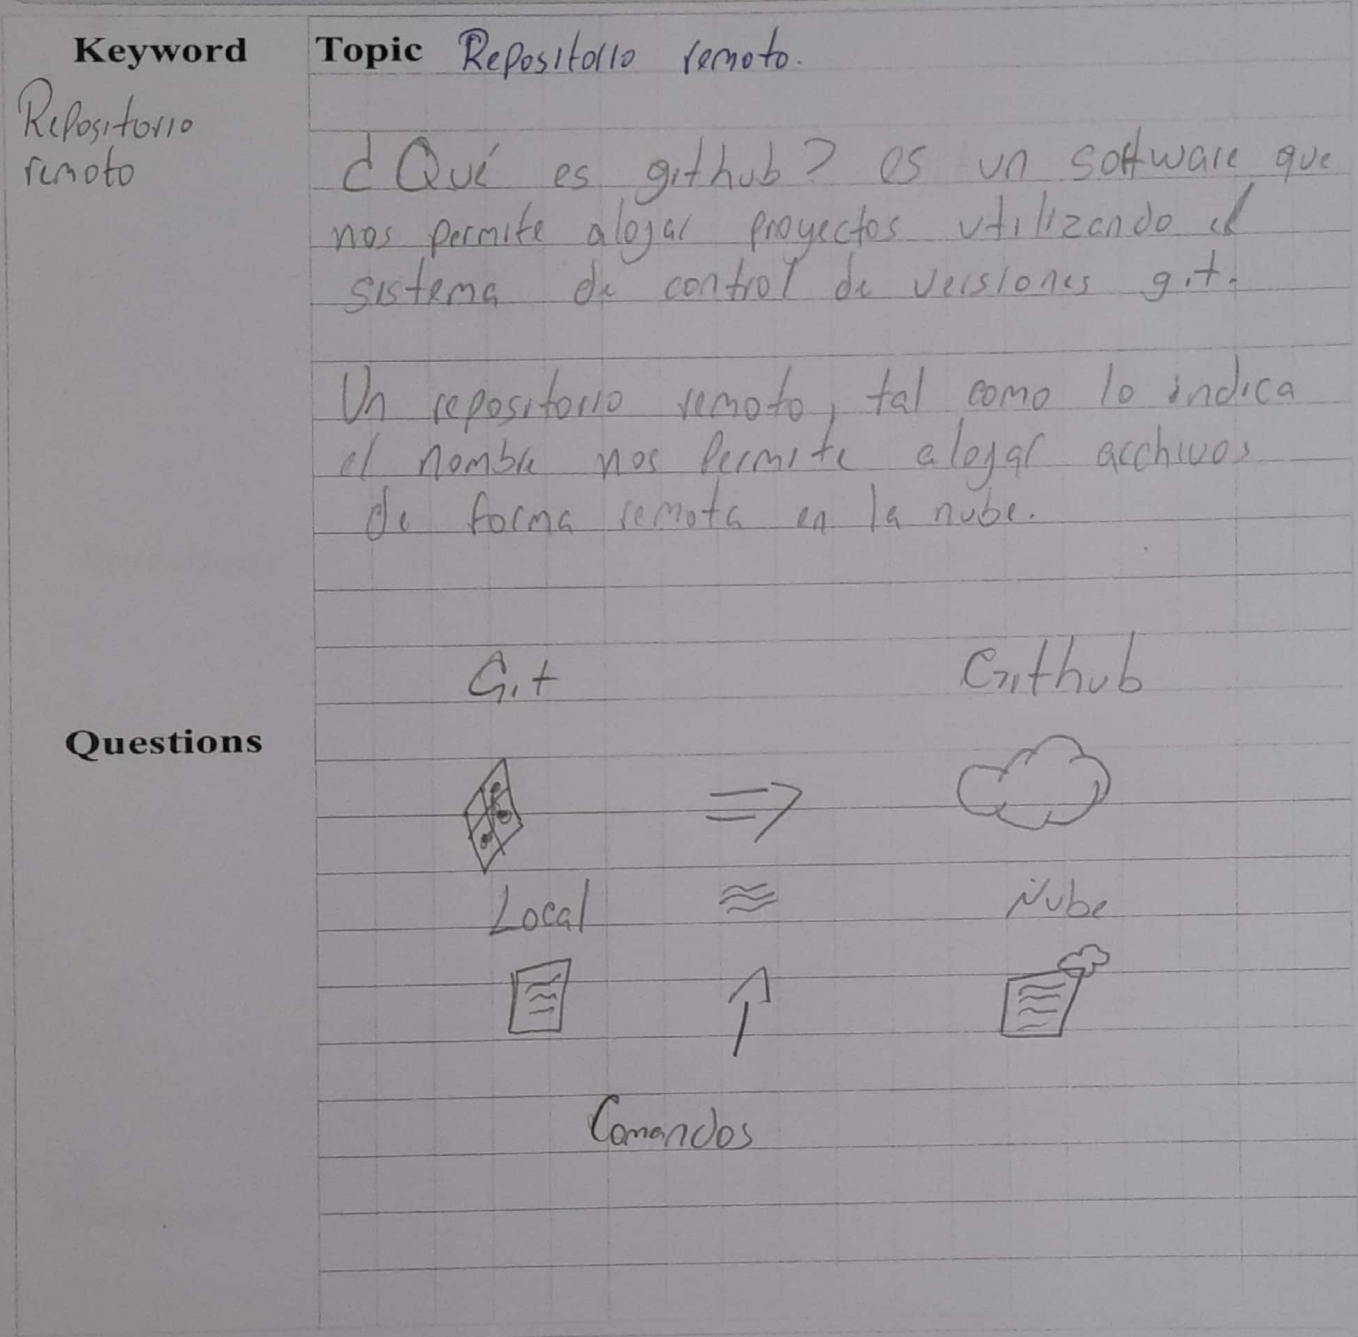 Keyword
Topic Repositorio remoto.
Repositorio
remoto
¿Qué es github? es un software que
nos permite alojar proyectos utilizando el
sistema de control de versiones git.
Un repositorio remoto, tal como lo indica
el nombre nos permite alojar archivos
de forma remota en la nube.
Git Github
Questions
Local Nube
Comandos